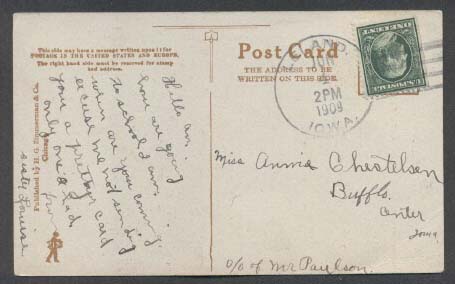 This side may have a message written upon it for
POSTAGE IN THE UNITED STATES AND EUROPE.
The right hand side must be removed for stamp
and address.
Published by H. G. Zimmerman & Co.
Chicago
Hello Ann.
how are you going
to school I am.
when are you coming.
excuse me not sending
you a prettyer card
only one I had
sister Louise
Post Card
THE ADDRESS TO BE
WRITTEN ON THIS SIDE
LELAND
2PM
1909
IOWA.
Miss Annia Chestelsen
Bufflo.
Center
Iowa
c/o of Mr Paulson.